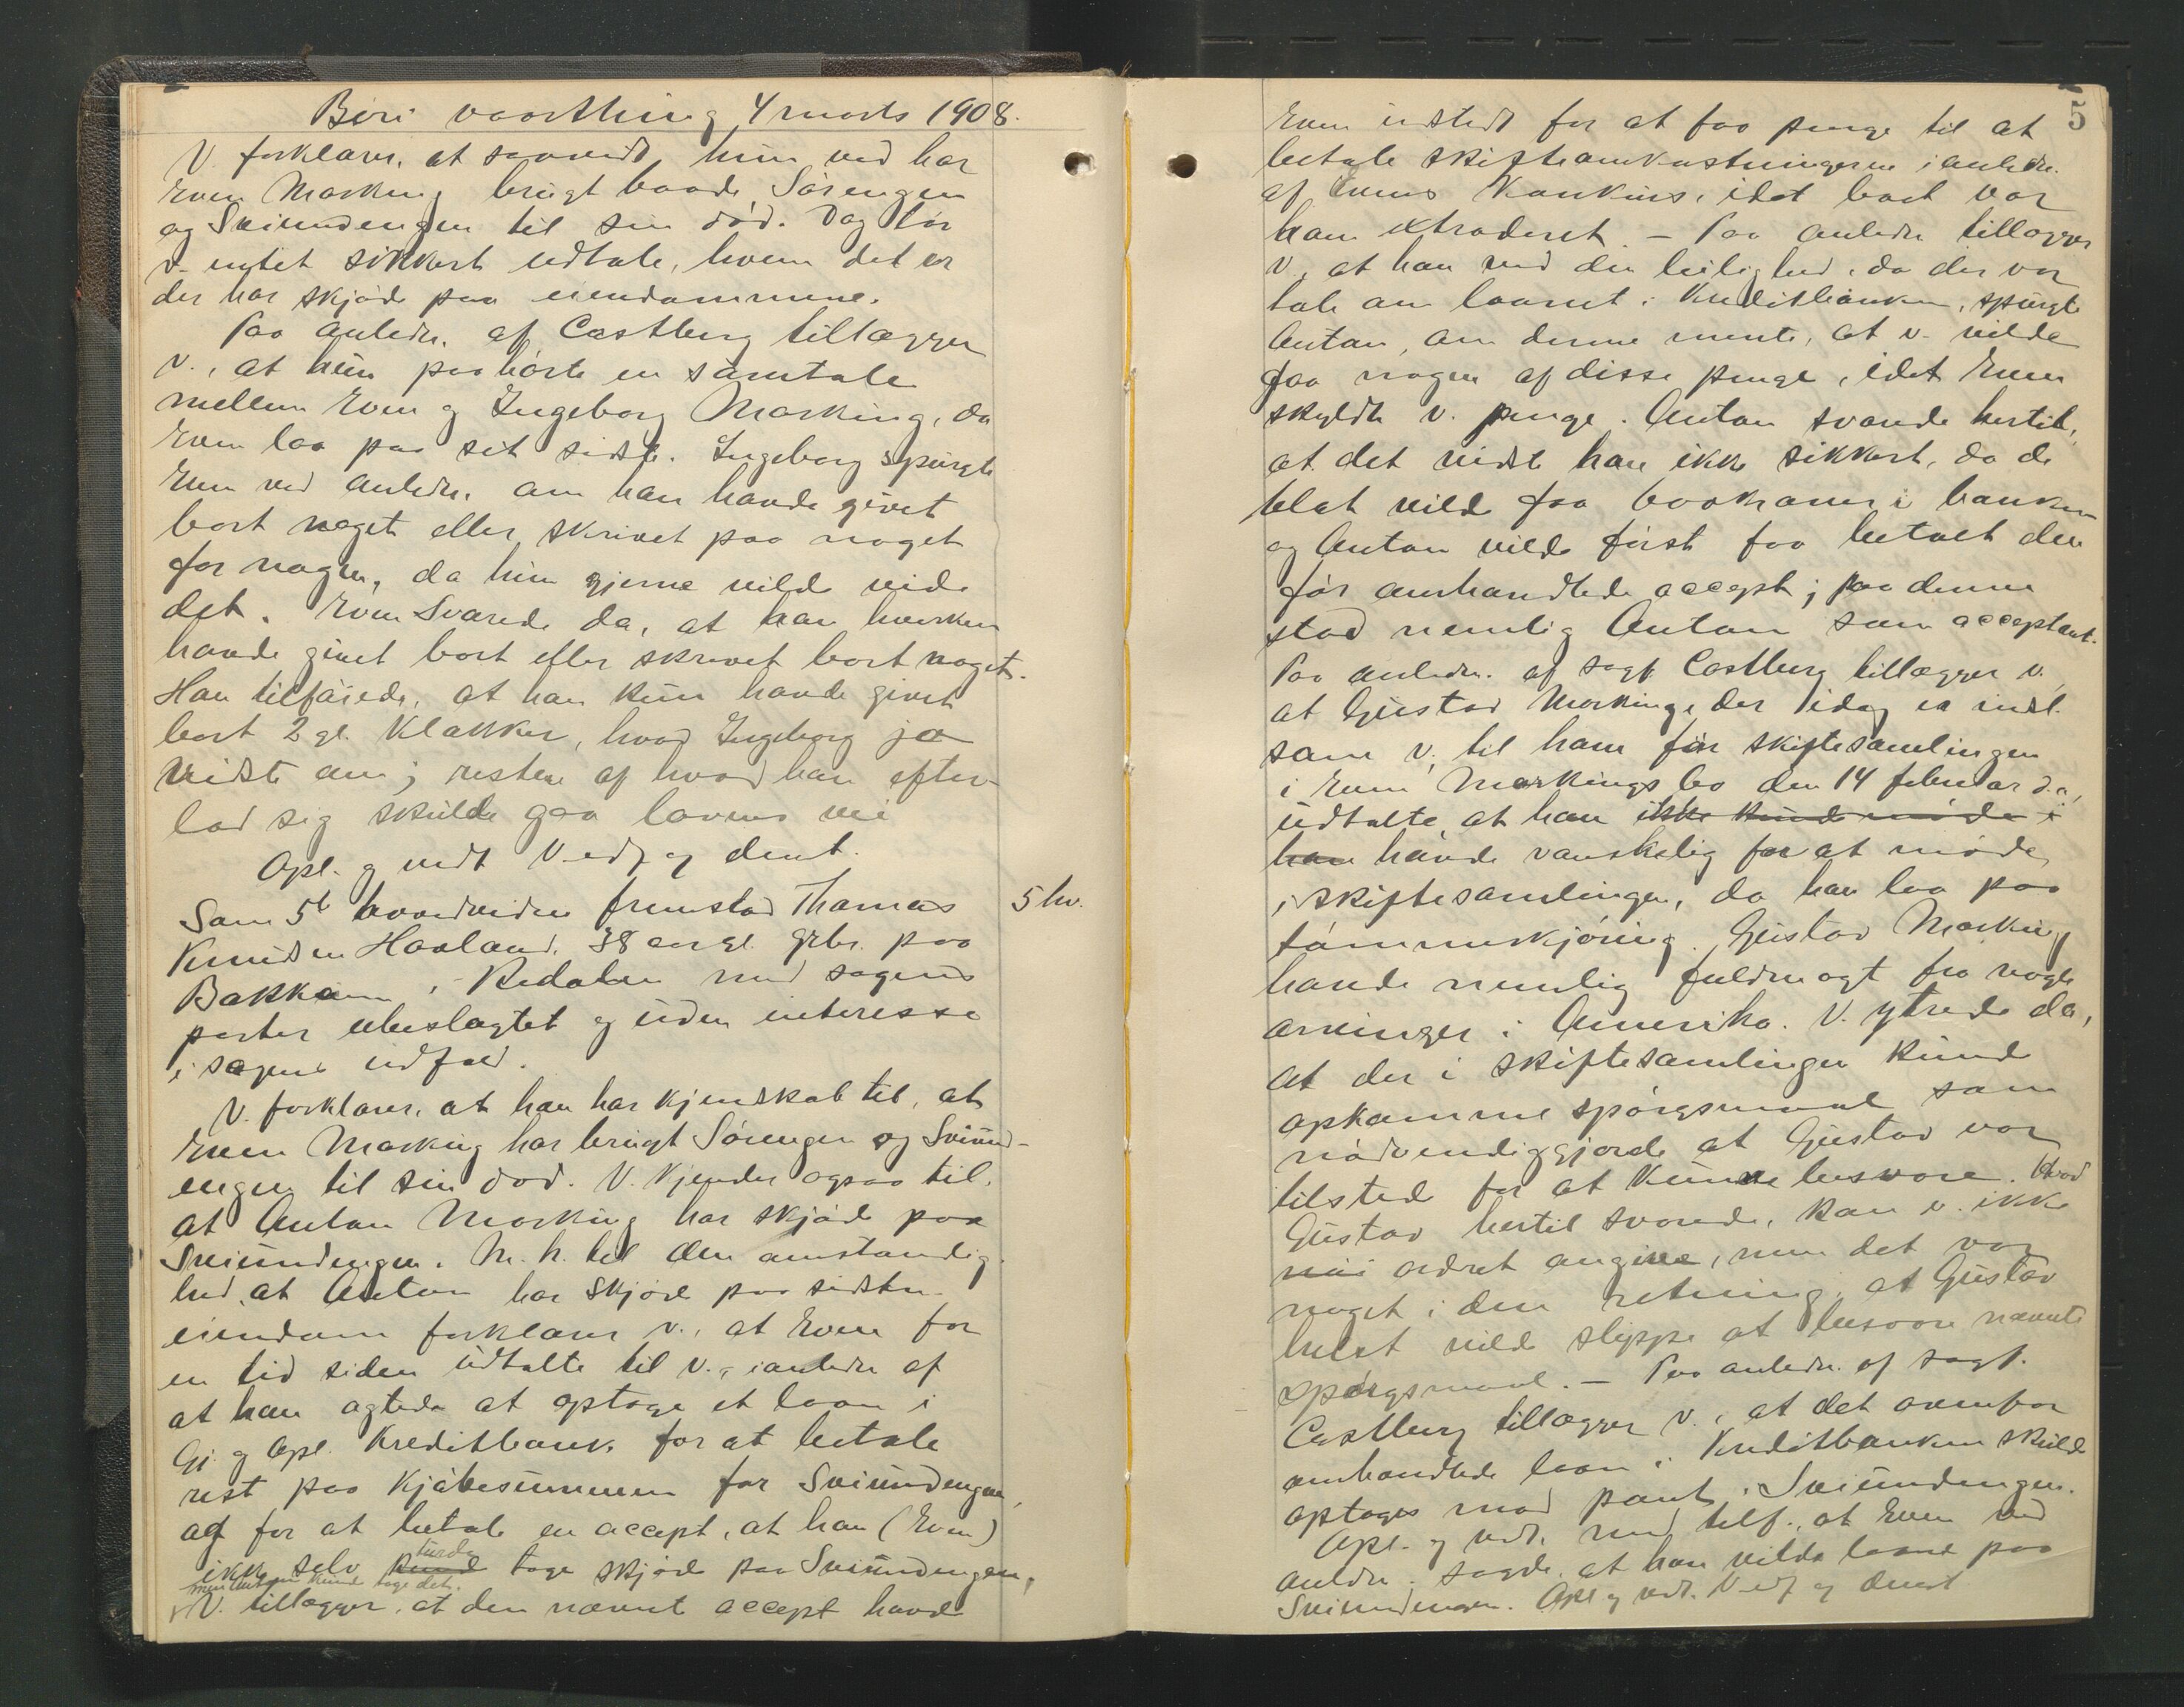 Biri vaarthing 4 marts 1908.
V. forklarer, at saavidt hun ved har
Even Marking brugt baade Sørengen
og Sviundengen til sin død. Dog tør
v. intet sikkert udtale, hvem det er
der har skjøde paa eiendommene.
Paa anledn. af Castberg tillægger
v., at hun paahørte en samtale
mellem Even og Ingeborg Marking, da
Even laa paa sit sidste. Ingeborg spurgte
Even ved anledn. om han havde givet
bort noget eller skrivet paa noget
for nogen, da hun gjerne vilde vide
det. Even svarede da, at han hverken
havde givet bort eller skrevet bort noget.
Han tilføiede, at han kun havde givet
bort 2 gl. klakker, hvad Ingeborg jo
vidste om; resten af hvad han efter-
lod sig skulde gaa lovens vei
Opl. og vedt. V. edf. og dimt.
Som 5t hovedvidne fremstod Thomas
Knudsen Haaland, 38 aar gl. gbr. paa
Bakken i Redalen med sagens
parter ubeslægtet og uden interesse
i sagens udfald.
V. forklarer, at han har kjendskab til, at
Even Marking har brugt Sørengen og Sviund-
engen til sin død. V. kjender ogsaa til,
at Anton Marking har skjøde paa
Sviundengen. M. h. til den omstændig-
hed, at Anton har skjøde paa sidstn.
eiendom forklarer v., at Even for
en tid siden udtalte til v., i anledn. af
at han agtede at optage et laan i
Gj. og Opl. Kreditbank for at betale
rest paa kjøbesummen for Sviundengen,
og for at betale en accept, at han (Even)
turde
ikke selv kunde tage skjøde paa Sviundengen,
men Anton kunde tage det.
V. tillægger, at den nævnte accept havde
5 hv.
5
Even udstedt for at faa penge til at
betale skifteomkostningerne i anledn.
af Evens konkurs, idet boet var
ham extraderet. — Paa anledn. tillægger
v., at han ved den leilighed, da der var
tale om laanet i Kreditbanken, spurgte
Anton, om denne mente, at v. vilde
faa nogen af disse penge, idet Even
skyldte v. penge. Anton svarede hertil,
at det vidste han ikke sikkert, da de
blot vilde faa 600 kroner i banken
og Anton vilde først faa betalt den
før omhandlede accept; paa denne
stod nemlig Anton som acceptant.
Paa anledn. af sagf. Castberg tillægger v.,
at Gustav Marking, der idag er indst.
som v., til ham før skiftesamlingen
i Even Markings bo den 14 februar d.a.
udtalte, at han ikke kunde møde i
han havde vanskelig for at møde
i skiftesamlingen, da han laa paa
tømmerkjøring. Gustav Marking
havde nemlig fuldmagt fra nogle
arvinger i Amerika. V. ytrede da,
at der i skiftesamlingen kunde
opkomme spørgsmaal som
nødvendiggjorde at Gustav var
tilstede for at kunne besvare. Hvad
Gustav hertil svarede, kan v. ikke
nøi ordret angive, men det var
noget i den retning, at Gustav
helst vilde slippe at besvare nævnte
spørgsmaal. — Paa anledn. af sagf.
Castberg tillægger v., at det ovenfor
omhandlede laan i Kreditbanken skulde
optages mod pant i Sviundengen.
Opl. og vedt. med tilf., at Even ved
anledn. sagde, at han vilde laane paa
Sviundengen. Opl. og vedt. V. edf. og dimit.